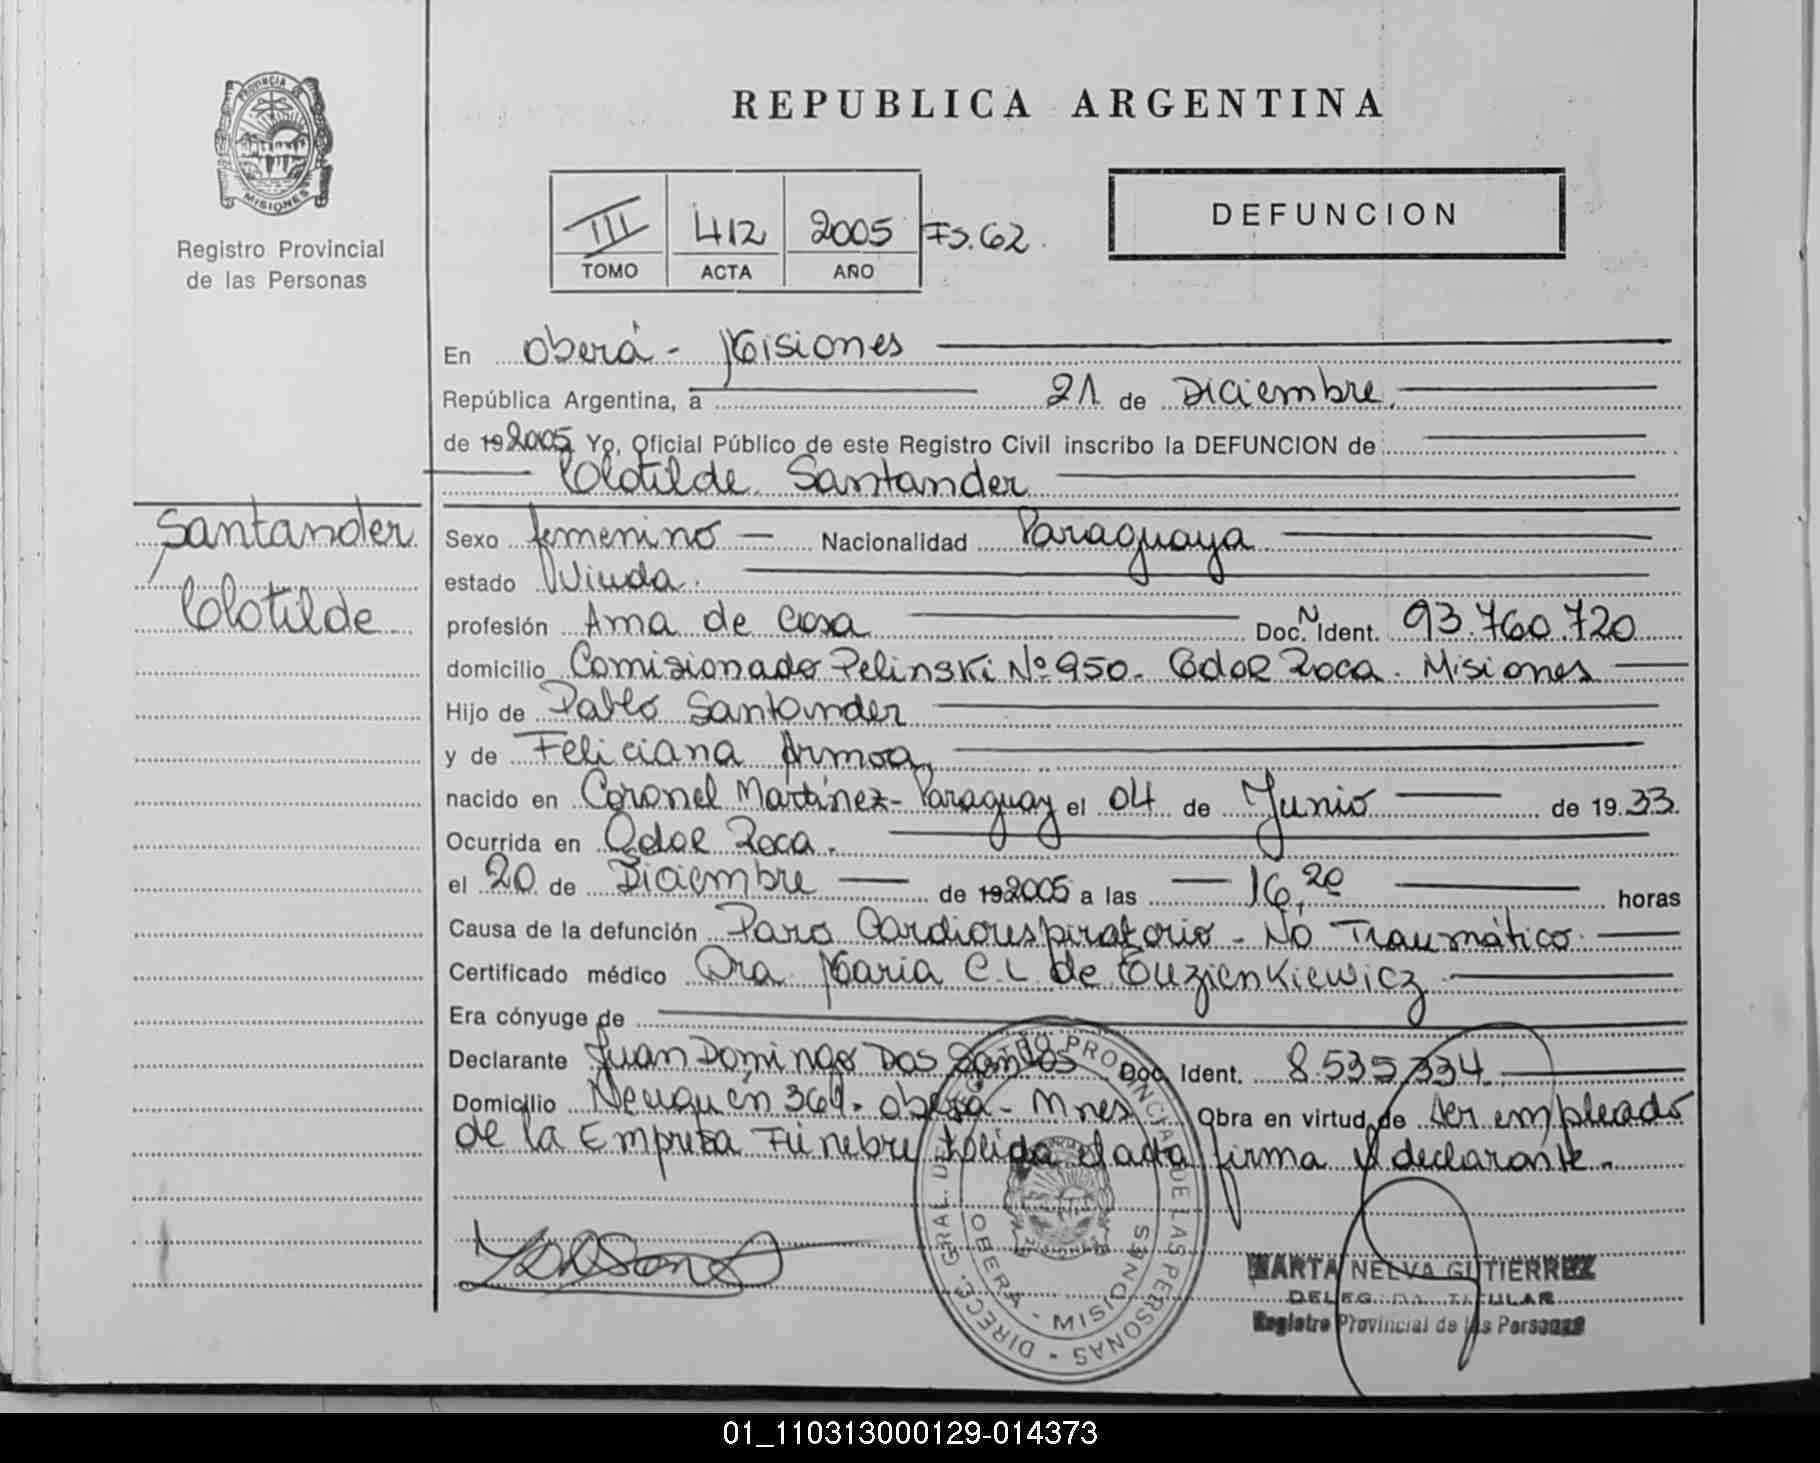 REPUBLICA ARGENTINA
PROVINCIA DE
MISIONES
Registro Provincial
de las Personas
III 412 2005 Fs. 62.
TOMO ACTA AÑO
DEFUNCION
En Oberá - Misiones
República Argentina, a 21 de Diciembre
de 19 2005 Yo, Oficial Público de este Registro Civil inscribo la DEFUNCION de
Clotilde Santander
Santander
Clotilde
Sexo femenino Nacionalidad Paraguaya
estado Viuda.
profesión Ama de casa Doc. N Ident. 93.760.720
domicilio Comisionado Pelinski Nº 950. Cdor Roca. Misiones
Hijo de Pablo Santander
y de Feliciana Armoa
nacido en Coronel Martínez - Paraguay el 04 de Junio de 19 33.
Ocurrida en Cdor Roca.
el 20 de Diciembre de 19 2005 a las 16,20 horas
Causa de la defunción Paro Cardiorespiratorio - No Traumático.
Certificado médico Dra. Maria C. L. de Euzienkiewicz
Era cónyuge de
Declarante Juan Domingo Dos Santos Doc. Ident. 8.535.334
Domicilio Neuquén 369. Oberá - Mnes Obra en virtud de ser empleado
de la Empresa Fúnebre leída el acta firma el declarante.
DIRECC. GRAL. DE REGISTRO PROVINCIAL DE LAS PERSONAS
OBERA - MISIONES
MARTA NEEVA GUTIERREZ
DELEGADA TITULAR
Registro Provincial de las Personas
01_110313000129-014373